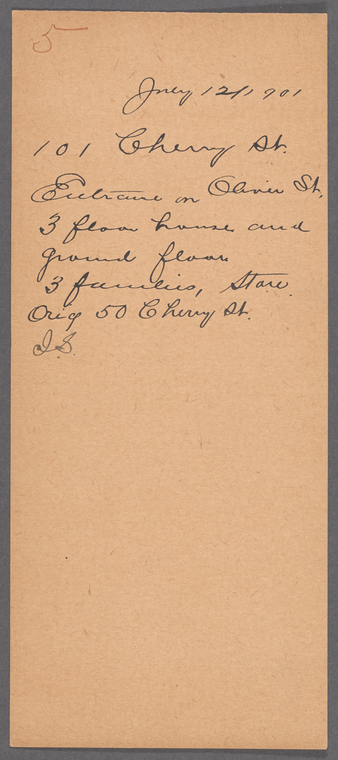 5
July 12/1901
101 Cherry St.
Entrance on Oliver St.
3 floor house and
ground floor
3 families, Store
Orig 50 Cherry St.
I.S.